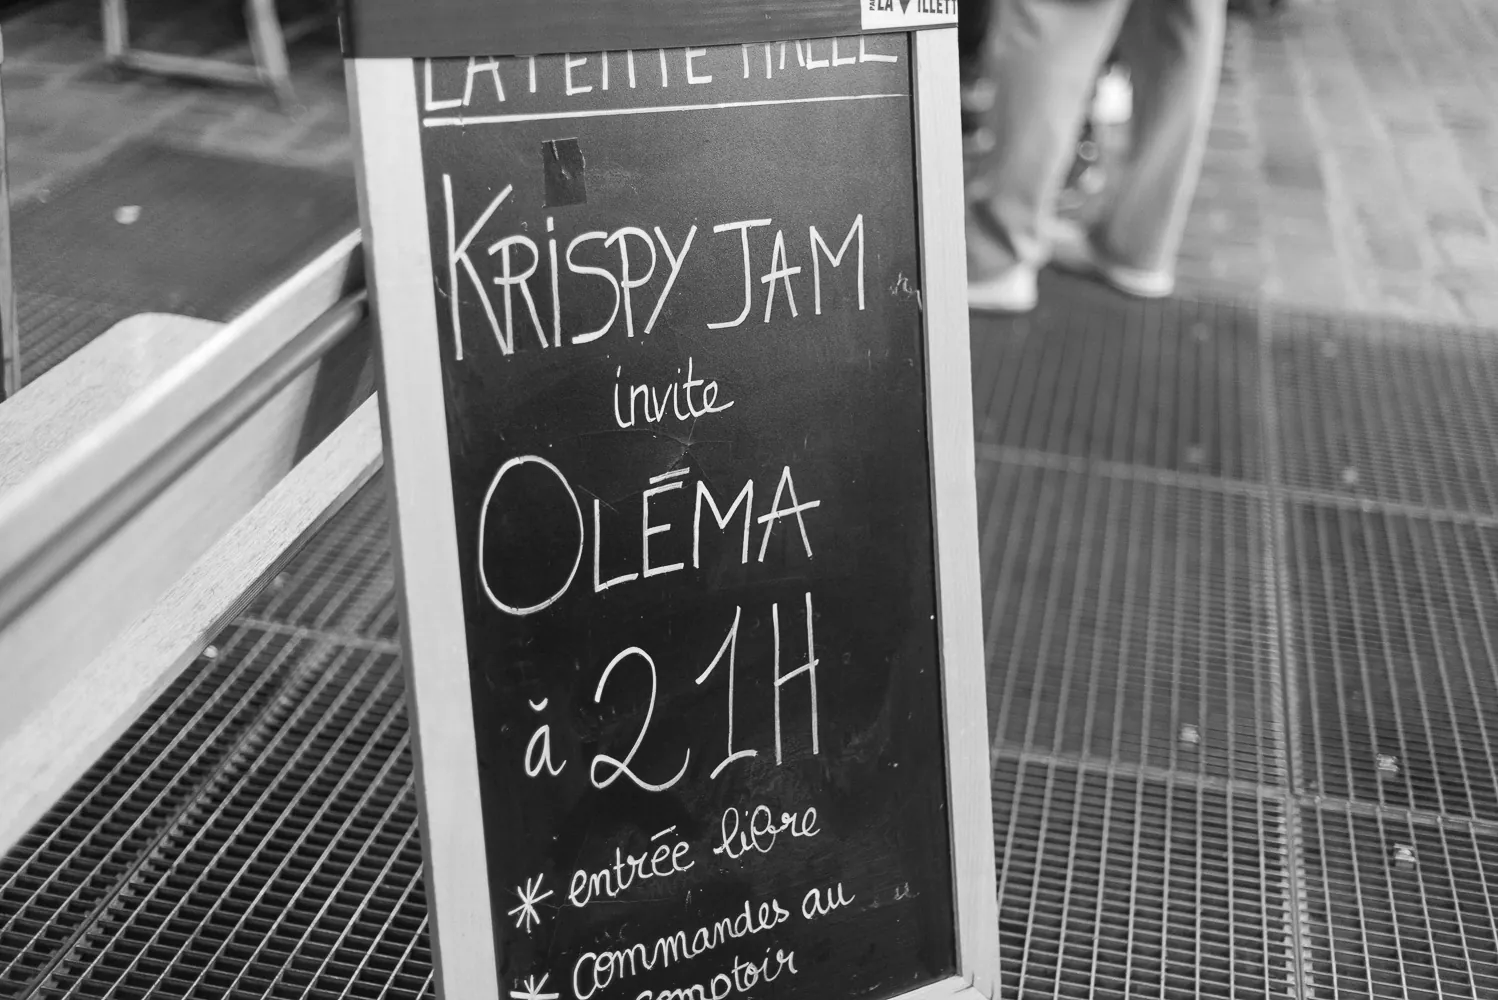 LA VILLETTE
LA PETITE HALLE
KRISPY JAM
invite
OLĒMA
ă 21H
* entrēe libre
* commandes au
comptoir